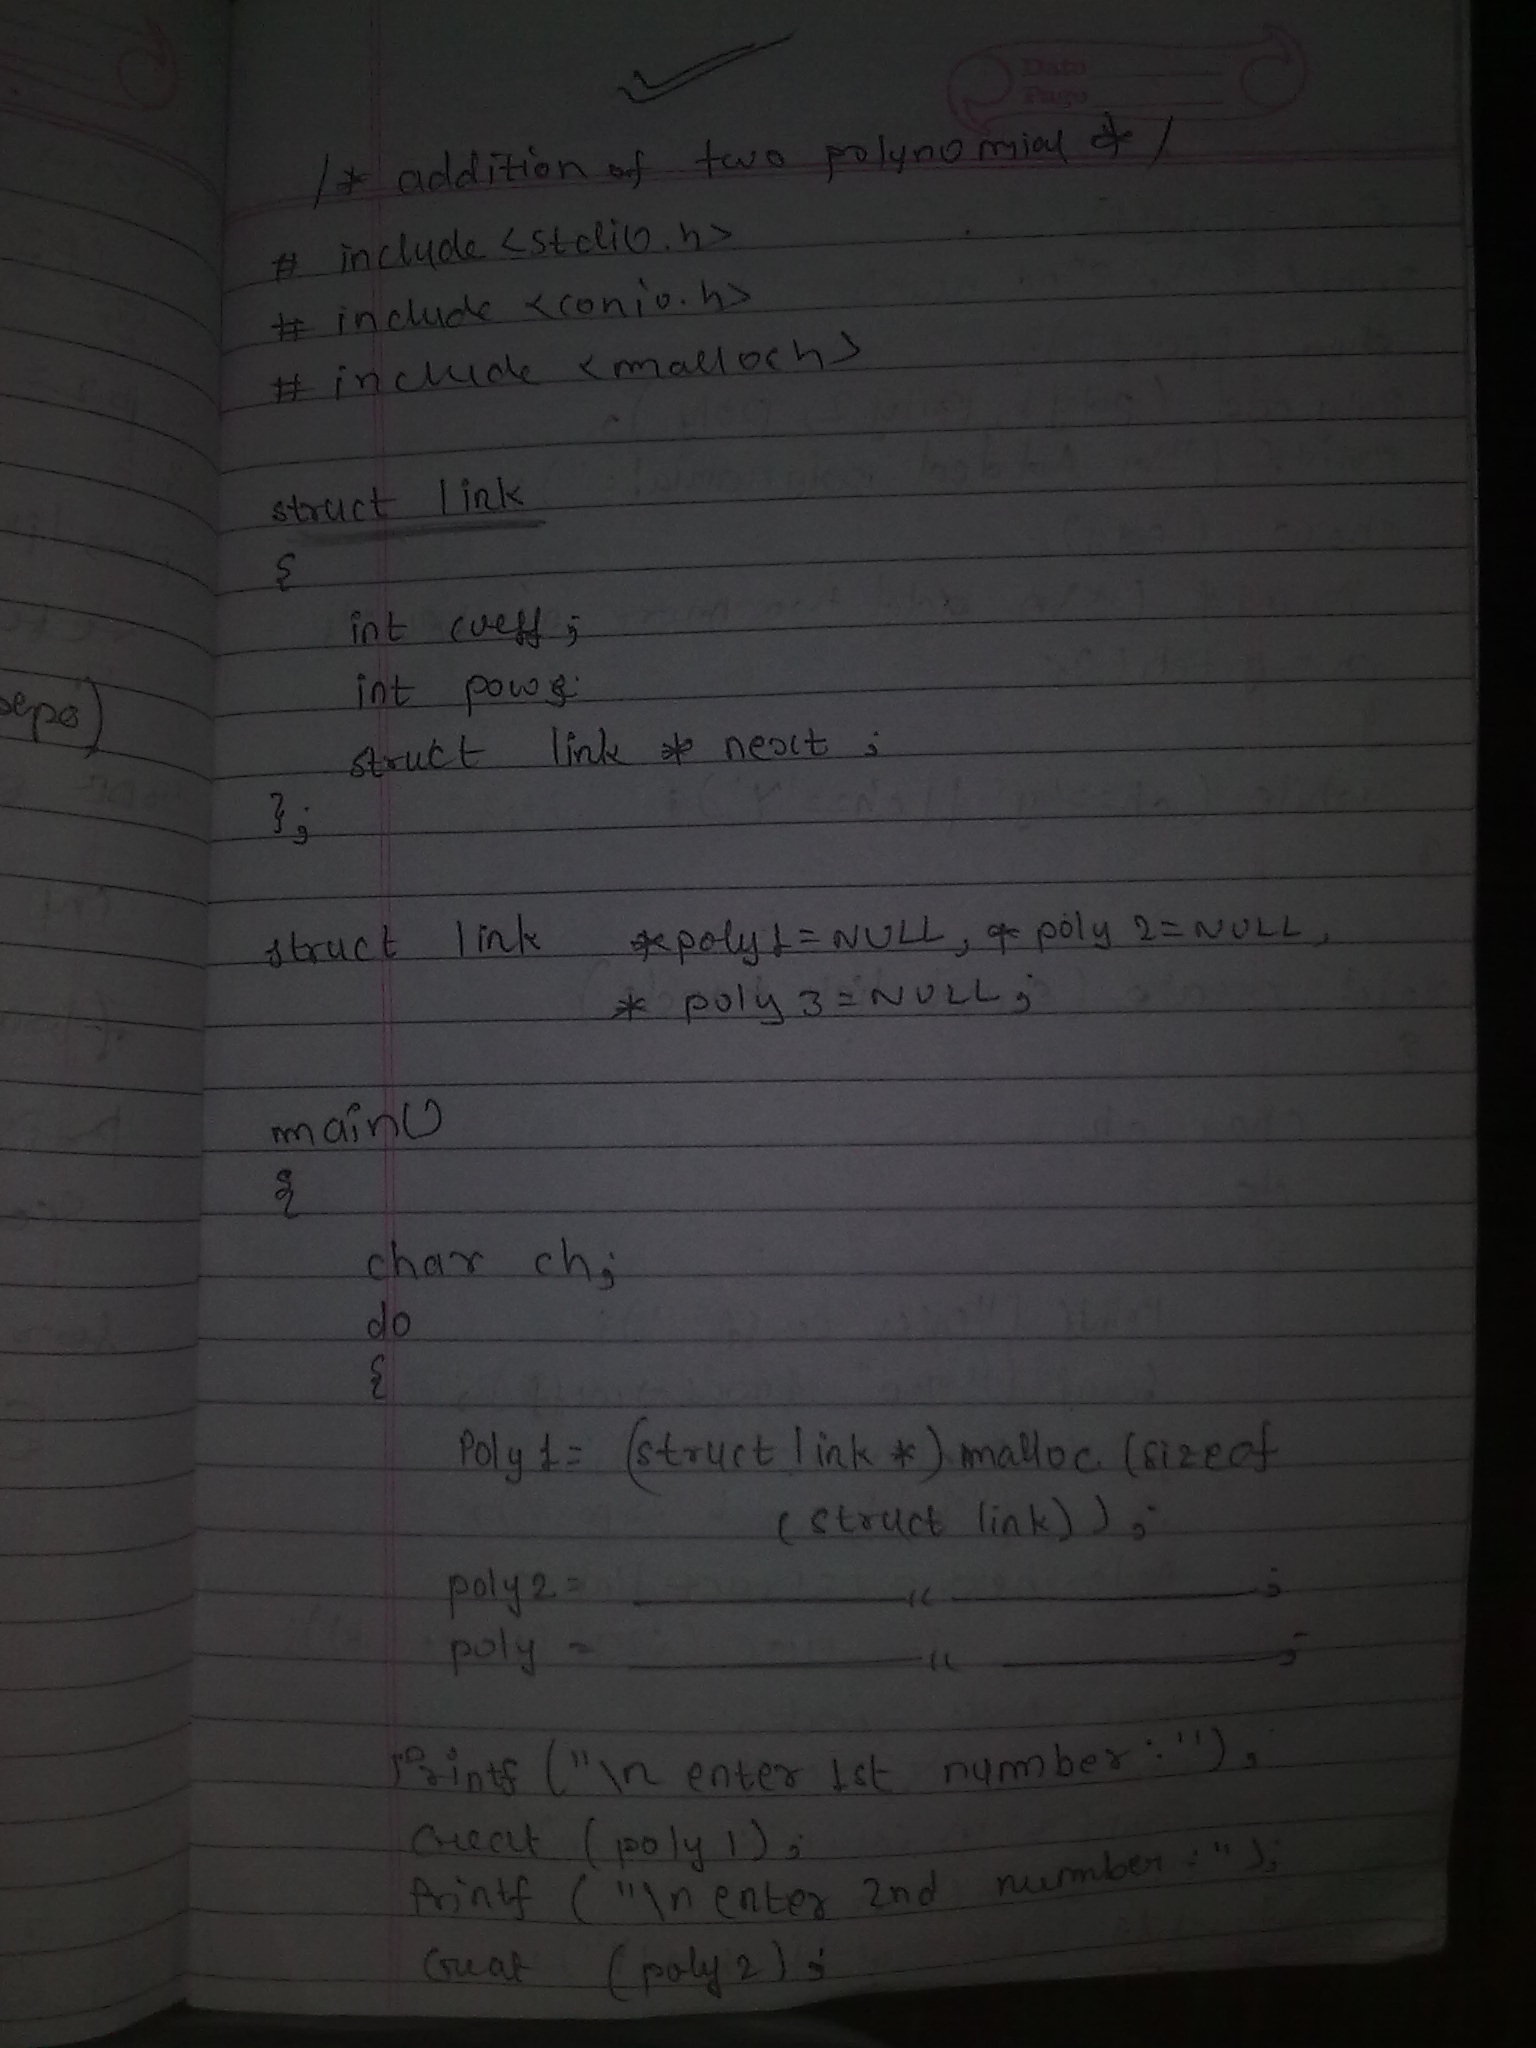 Date
Page
/* addition of two polynomial */
# include <stdio.h>
# include <conio.h>
# include <malloc.h>
struct link
{
int coeff;
int pow;
struct link * next ;
};
struct link *poly1=NULL, * poly 2=NULL,
* poly 3=NULL;
main()
{
char ch;
do
{
Poly 1= (struct link *) malloc (sizeof
(struct link));
poly 2= —— " —— ;
poly = —— " —— ;
Printf ("\n enter 1st number:");
Creat (poly 1);
Printf ("\n enter 2nd number:");
Creat (poly 2);